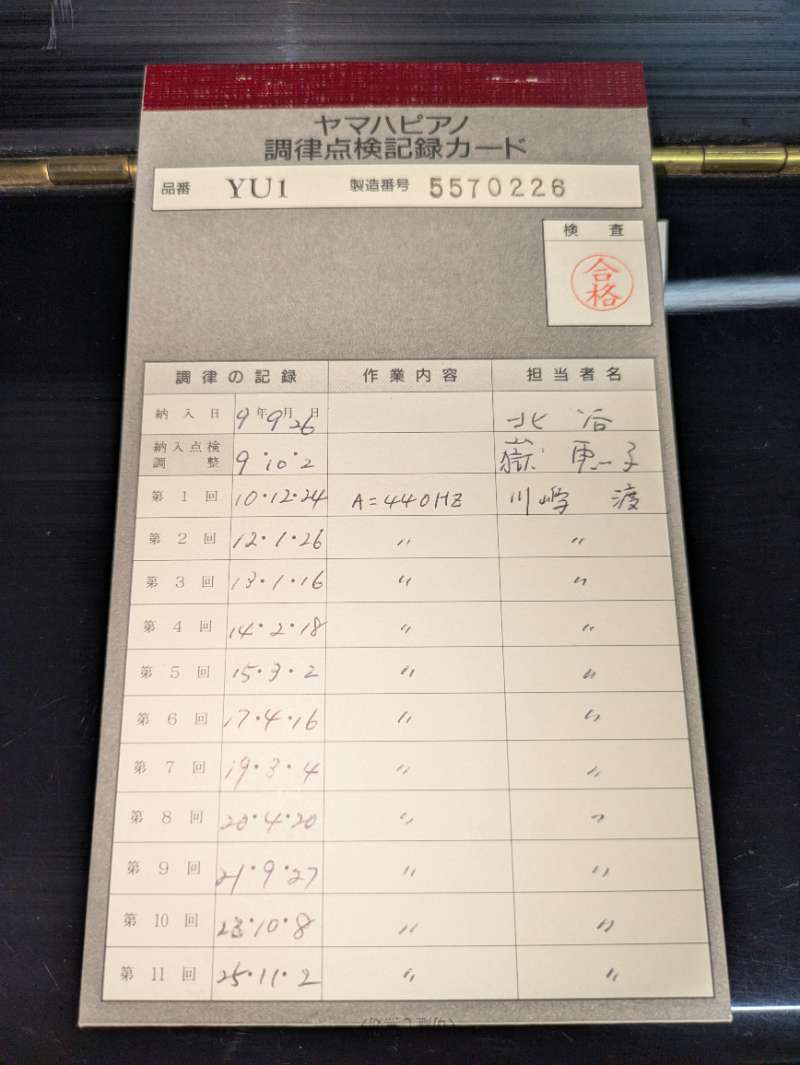 ヤマハピアノ
調律点検記録カード
品番 YU1 製造番号 5570226
検査
合格
調律の記録 作業内容 担当者名
納入日 9年9月26日 北谷
納入点検調整 9・10・2 嶽 恵子
第1回 10・12・24 A=440HZ 川嶋 渡
第2回 12・1・26 〃 〃
第3回 13・1・16 〃 〃
第4回 14・2・18 〃 〃
第5回 15・3・2 〃 〃
第6回 17・4・16 〃 〃
第7回 19・3・4 〃 〃
第8回 20・4・20 〃 〃
第9回 21・9・27 〃 〃
第10回 23・10・8 〃 〃
第11回 25・11・2 〃 〃